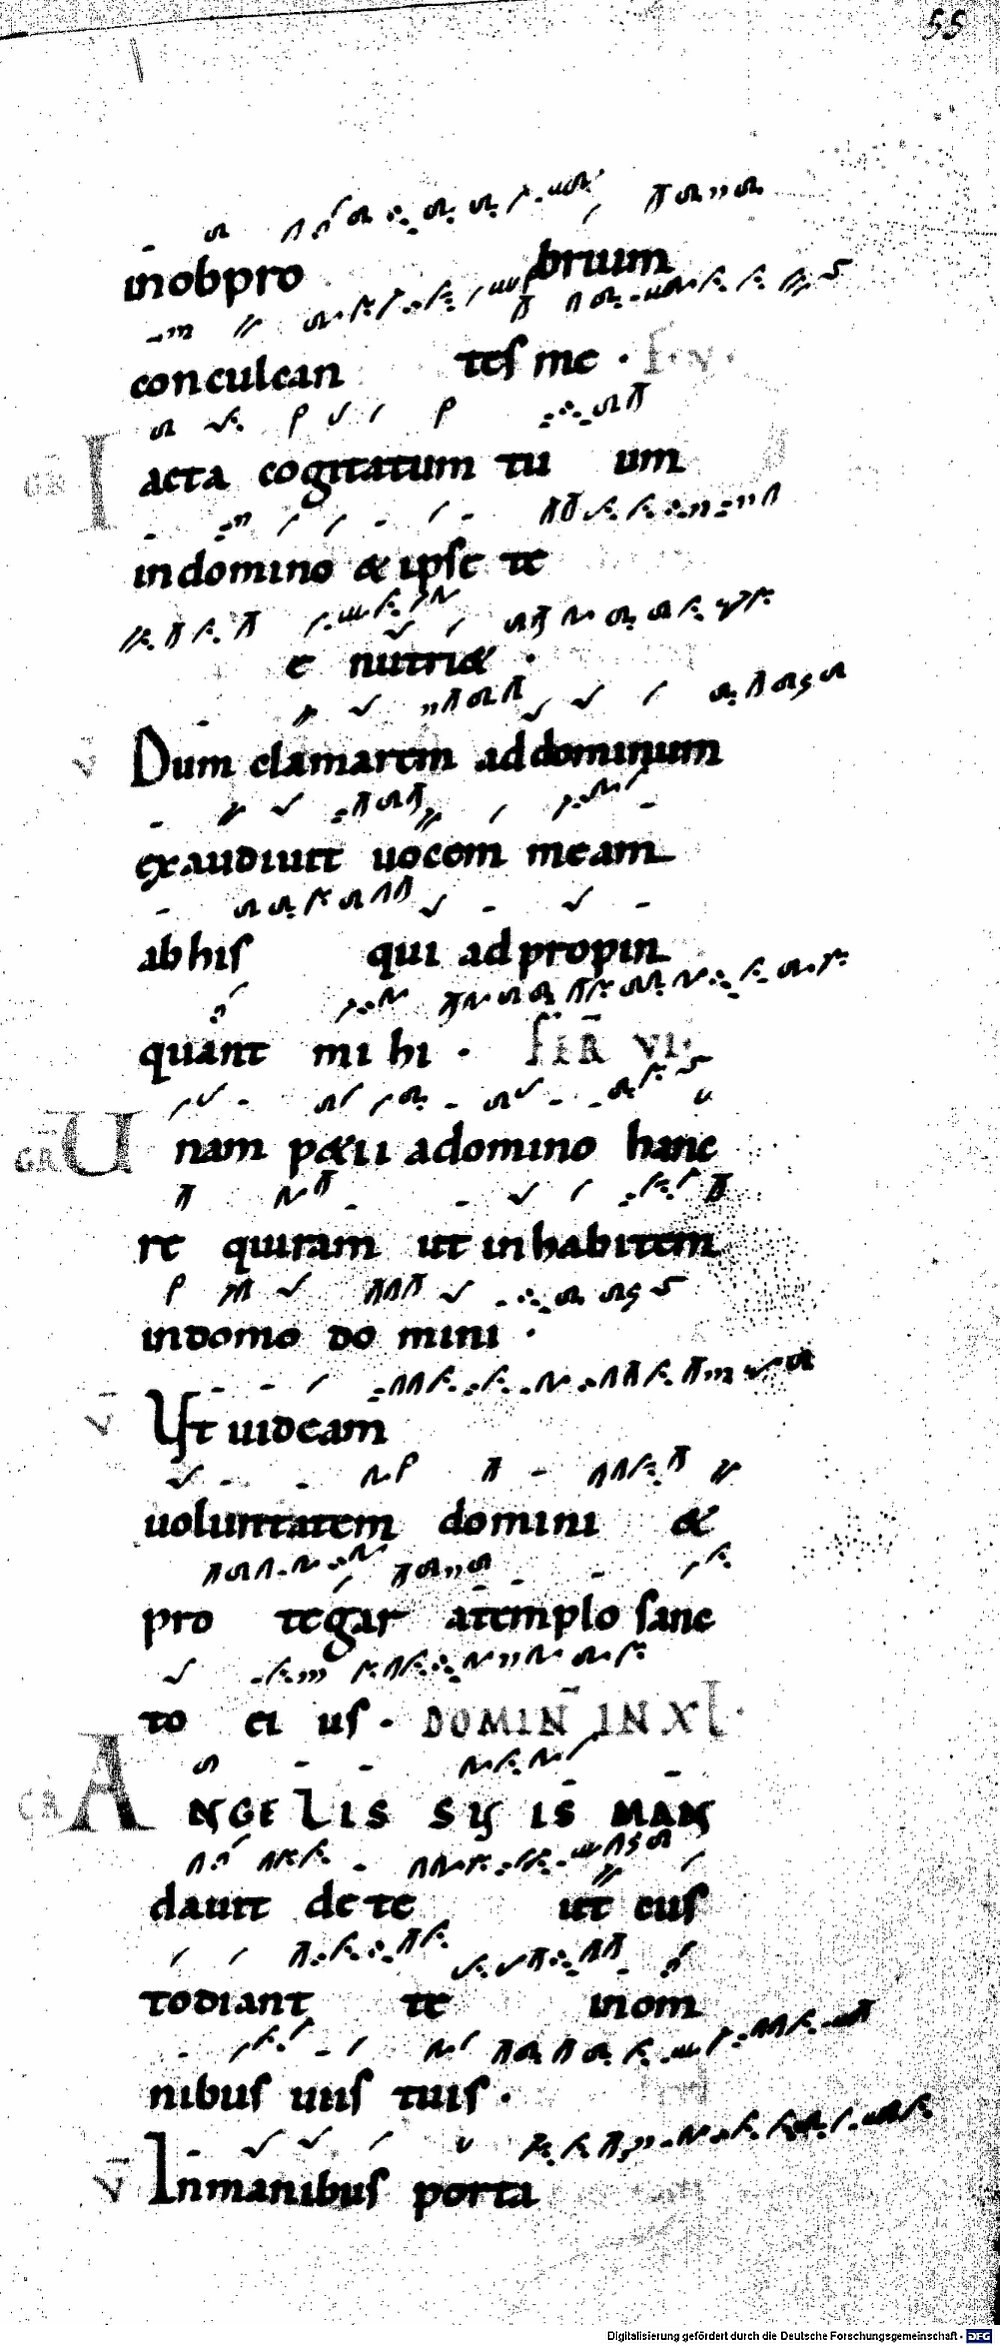 55
in obpro brium
conculcan tes me · F · V ·
GR̄ Iacta cogitatum tu um
in domino & ipse te
e nutri& ·
V̄ Dum clamarem ad dominum
exaudiuit uocem meam
ab his qui ad propin
quant mihi · FER̄ VI ·
GR̄ Unam p&ii a domino hanc
re quiram ut inhabitem
in domo do mini ·
V̄ Ut uideam
uoluntatem domini &
pro tegar a templo sanc
to ei us · DOMIN̄ IN XL ·
GR̄ ANGELIS SUIS MAN
dauit de te ut cus
todiant te in om
nibus uiis tuis ·
V̄ In manibus porta
Digitalisierung gefördert durch die Deutsche Forschungsgemeinschaft - DFG